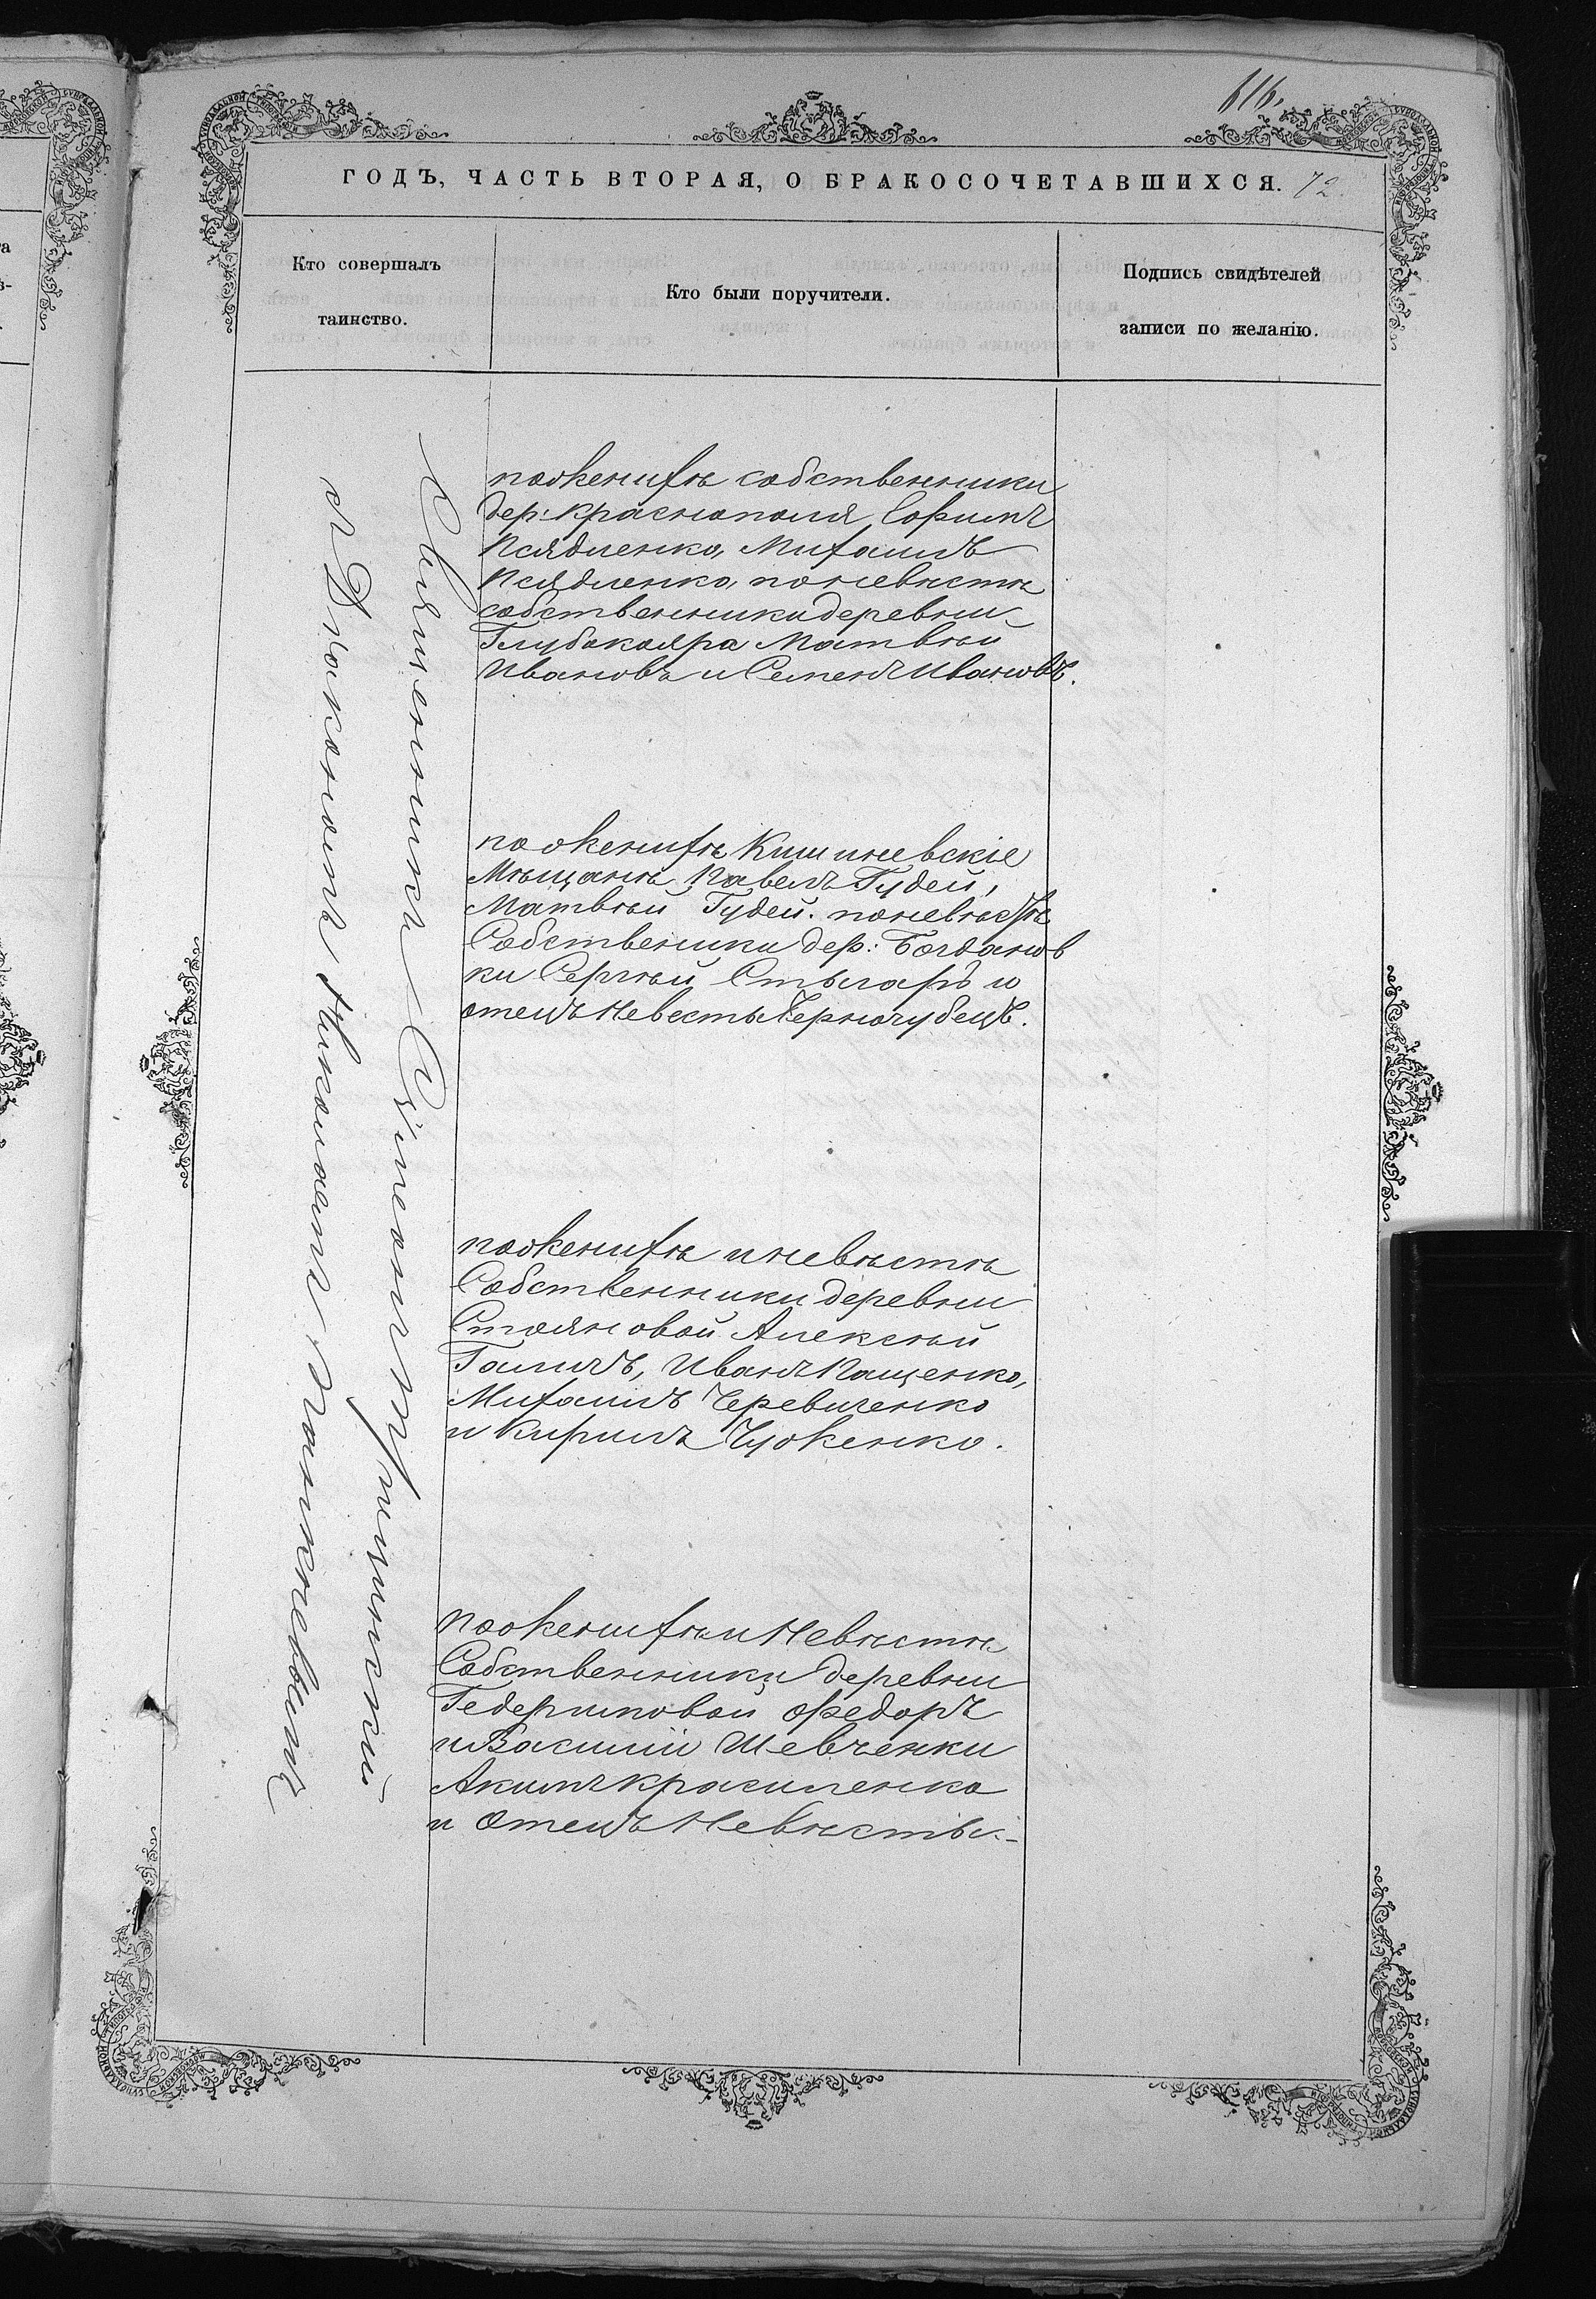 616.
ГОДЪ, ЧАСТЬ ВТОРАЯ, О БРАКОСОЧЕТАВШИХСЯ. 72
Кто совершалъ
таинство.
Кто были поручители.
Подпись свидѣтелей
записи по желанію.
Священникъ
съ Діакономъ Николаемъ
по женихѣ собственники
дер: Краснополя
Михаилъ
по невѣстѣ
собственники деревни
Глубокояра Матвѣй
Ивановъ и Семенъ Ивановъ.
по женихѣ Кишиневскіе
Мѣщане Павелъ Гудей,
Матвѣй Гудей. по невѣстѣ
Собственники дер: Богданов
ки Сергѣй Столяръ и
отецъ Невесты Черногубецъ.
по женихѣ и невѣстѣ
Собственники деревни
Стояновой Алексѣй
Галичъ, Иванъ Пащенко,
Михаилъ Черевиченко
и Кирилъ Чуженко.
по женихѣ и Невѣстѣ
Собственники деревни
Гедеримовой Федоръ
и Василій Шевченки
Акимъ Красиленко
и Отецъ Невѣсты.-